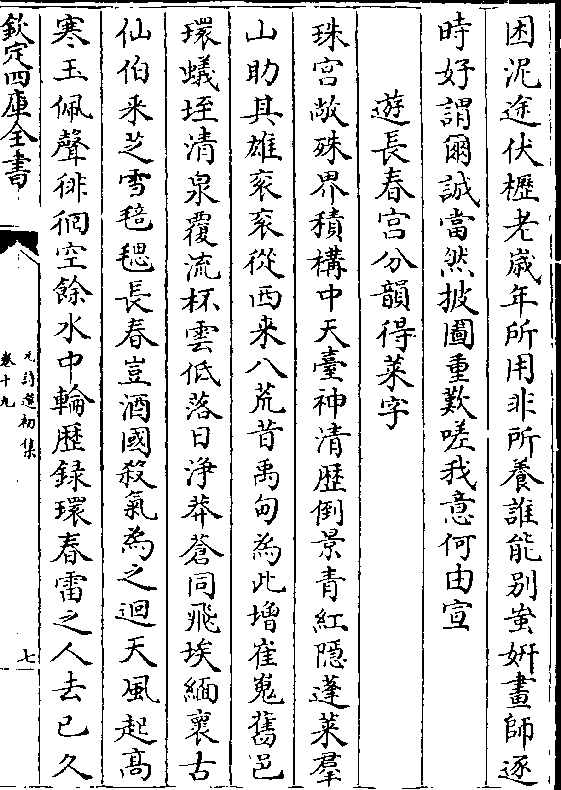 困泥途伏櫪老嵗年所用非所養誰能别蚩妍畫師逐
時好謂爾誠當然披圖重歎嗟我意何由宣
遊長春宫分韻得萊字
珠宫敞殊界積構中天臺神清歴倒景青紅隠蓬萊羣
山助其雄衮衮從西来八荒昔禹甸為此増崔嵬舊邑
環蟻垤清泉覆流杯雲低落日浄莽蒼同飛埃緬襄古
仙伯采芝雪毰毸長春豈酒國殺氣為之迴天風起高
寒玉佩聲徘徊空餘水中輪歴録環春雷之人去已久
欽定四庫全書
元詩選初集
卷十九
七